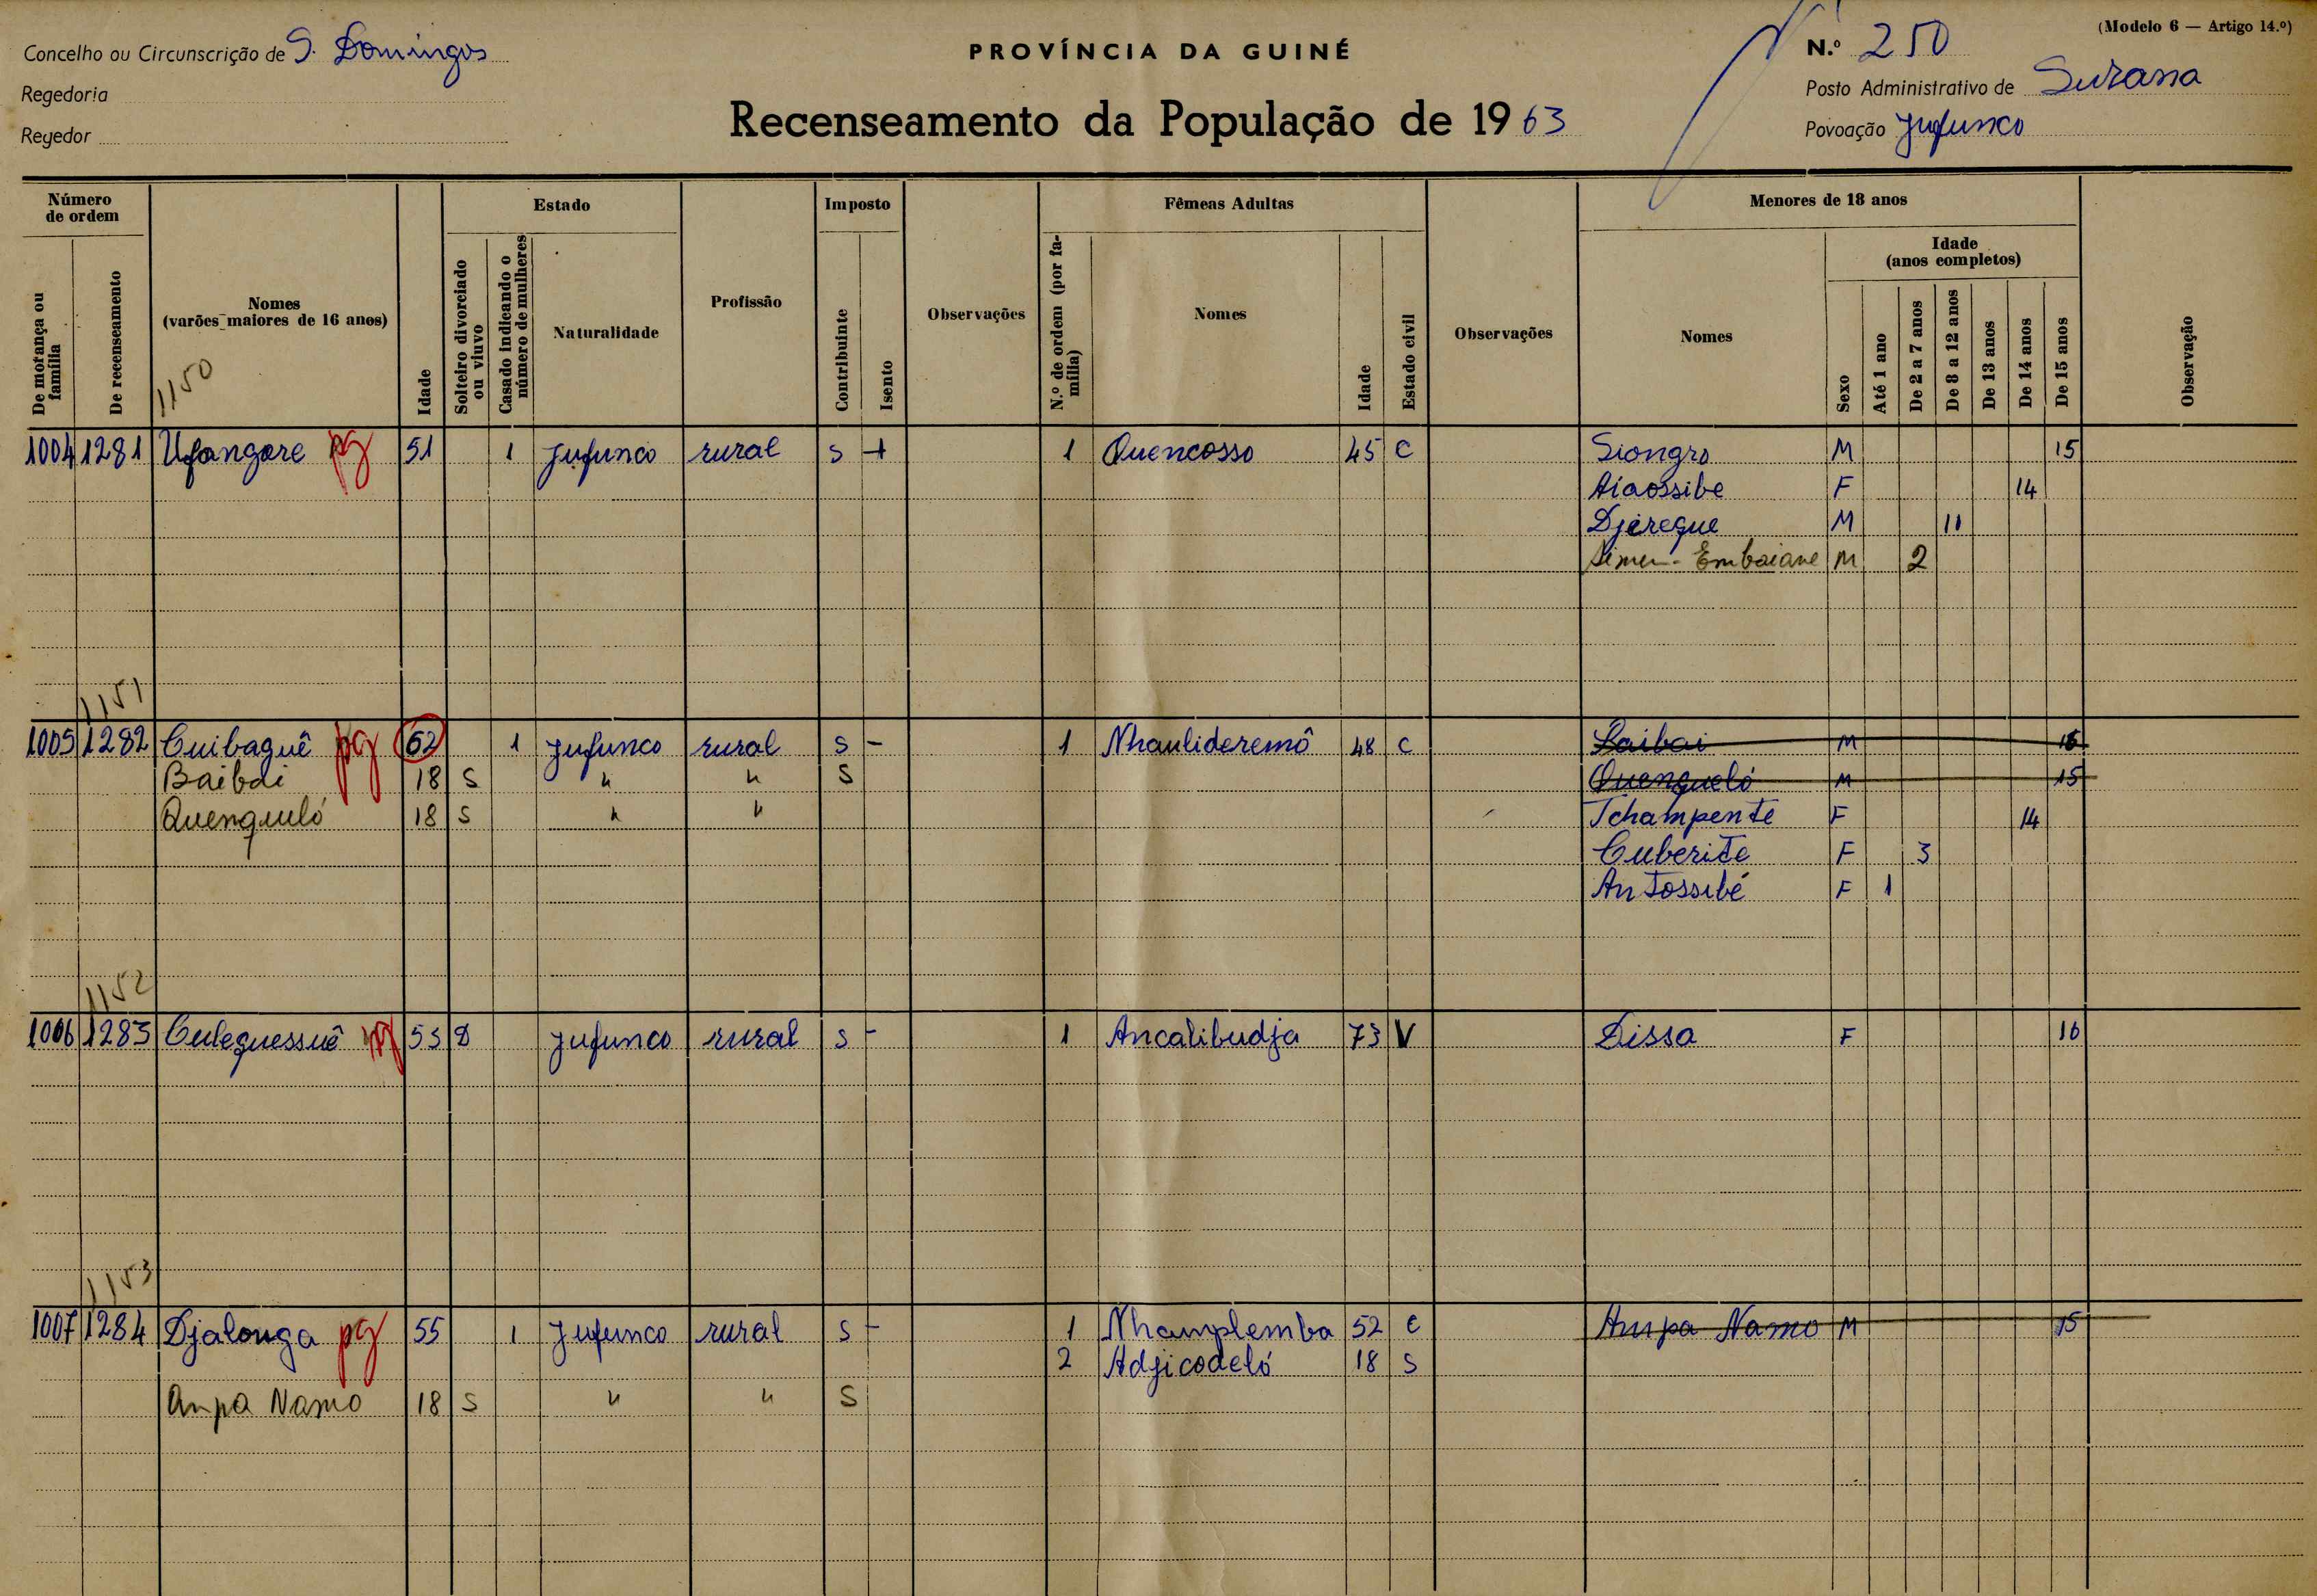 (Modelo 6 — Artigo 14.º)
Concelho ou Circunscrição de S. Domingos
PROVÍNCIA DA GUINÉ
N.º 250
Regedoria
Posto Administrativo de Suzana
Regedor
Recenseamento da População de 1963
Povoação Jufunco
Número de ordem
Estado
Imposto
Fêmeas Adultas
Menores de 18 anos
De morança ou família
De recenseamento
Nomes
(varões maiores de 16 anos)
Idade
Solteiro divorciado ou viuvo
Casado indicando o número de mulheres
Naturalidade
Profissão
Contribuinte
Isento
Observações
N.º de ordem (por família)
Nomes
Idade
Estado civil
Observações
Nomes
Sexo
Idade
(anos completos)
Até 1 ano
De 2 a 7 anos
De 8 a 12 anos
De 13 anos
De 14 anos
De 15 anos
Observação
1150
1004 1281 Ufangore pg 51 1 Jufunco rural S + 1 Quencosso 45 C Siongro M 15
Aiaossibe F 14
Djereque M 11
Embaiane M 2
1151
1005 1282 Cuibaguê pg 62 1 Jufunco rural S - 1 Nhaulideremô 48 C Baibai M 16
Baibai 18 S " " S Quenqueló M 15
Quenquuló 18 S " " Tchampente F 14
Cuberite F 3
Antossibé F 1
1152
1006 1283 Culequessuê pg 53 S Jufunco rural S - 1 Ancalibudja 73 V Dissa F 16
1153
1007 1284 Djalonga pg 55 1 Jufunco rural S - 1 Nhamplemba 52 C Anpa Namo M 15
2 Adjicodeló 18 S
Anpa Namo 18 S " " S